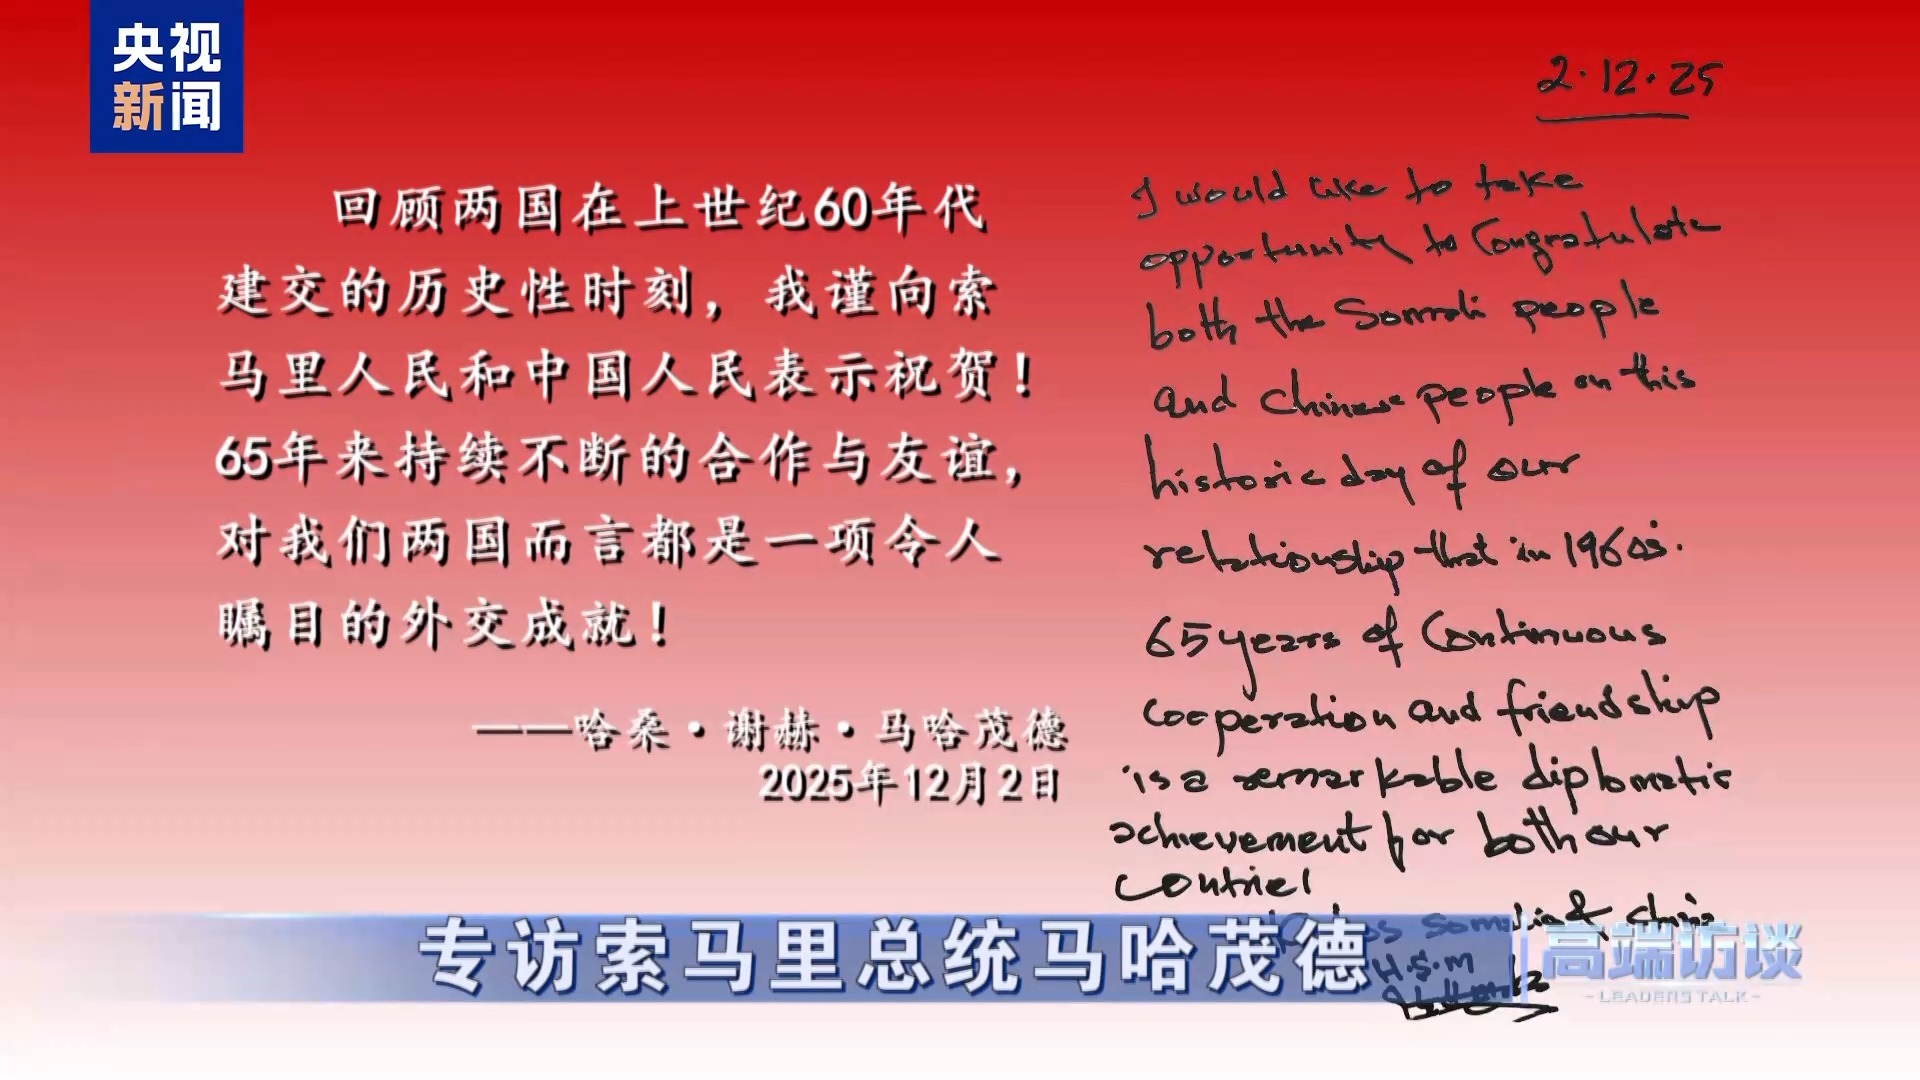 央视
新闻
2·12·25
回顾两国在上世纪60年代
建交的历史性时刻，我谨向索
马里人民和中国人民表示祝贺！
65年来持续不断的合作与友谊，
对我们两国而言都是一项令人
瞩目的外交成就！
——哈桑·谢赫·马哈茂德
2025年12月2日
I would like to take
opportunity to Congratulate
both the Somali people
and Chinese people on this
historic day of our
relationship that in 1960s.
65 years of Continuous
cooperation and friendship
is a remarkable diplomatic
achievement for both our
& China
H.S.M
专访索马里总统马哈茂德
高端访谈
- LEADERS TALK -